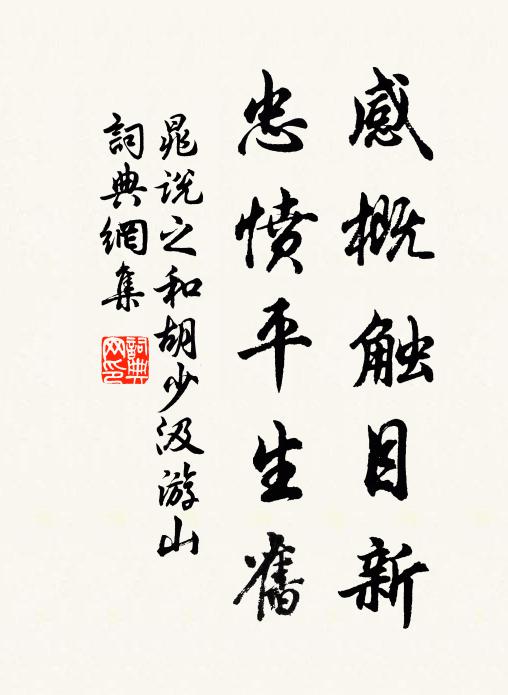 感概触目新
忠愤平生舊
晁说之和胡少汲游山
詞典網集
詞典網印